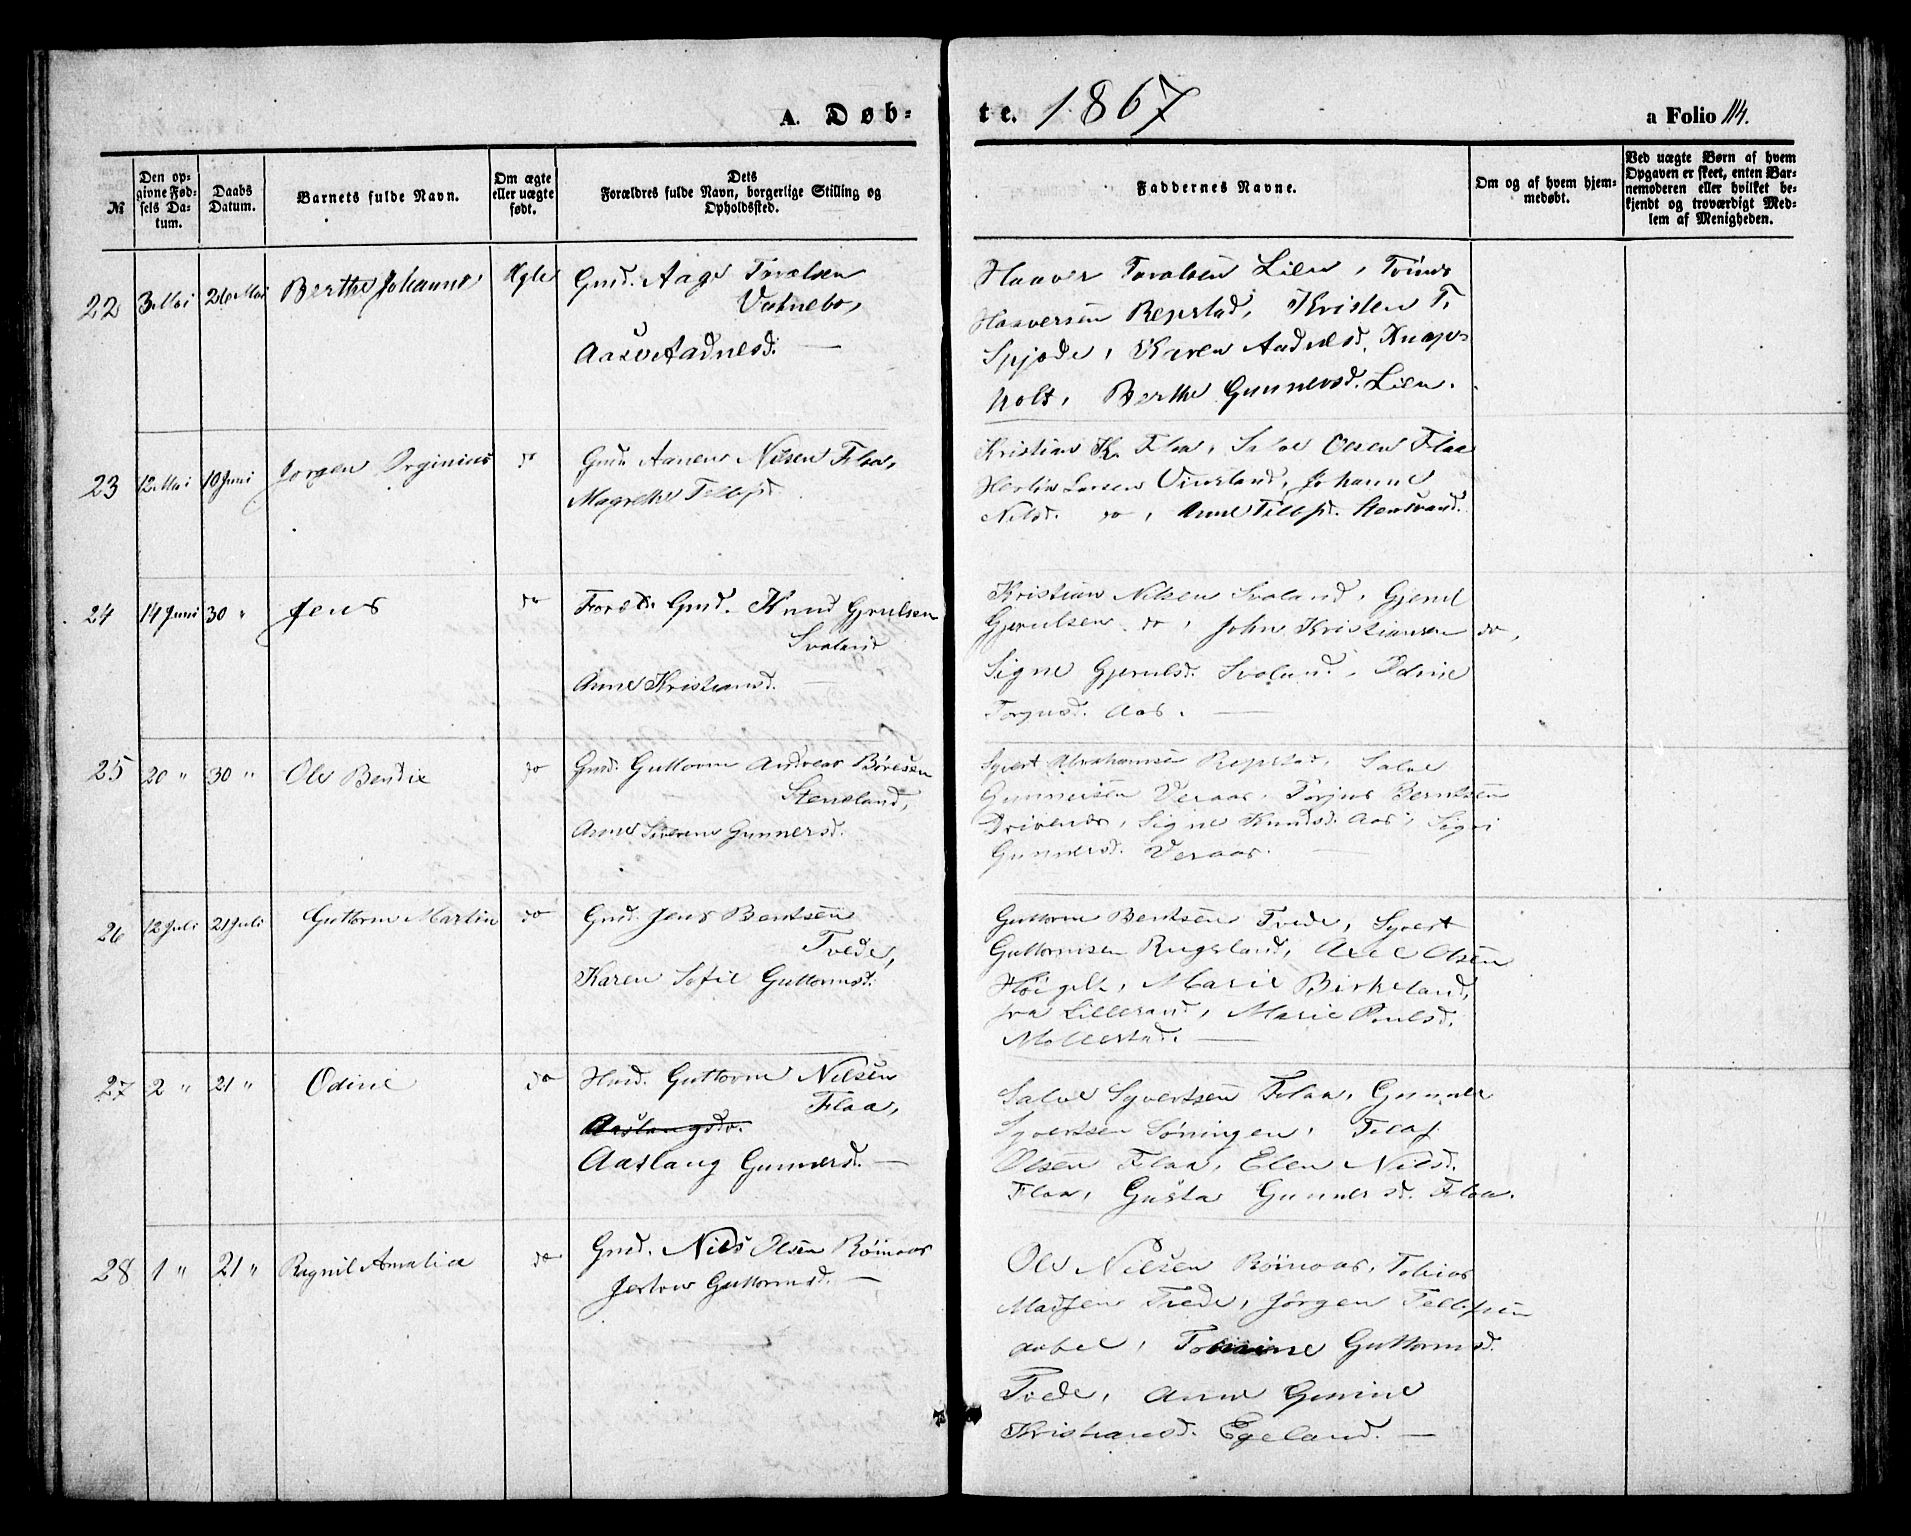 A. Døb-
te. 1867
a Folio 114.
№
Den opgivne Fødsels Datum.
Daabs Datum.
Barnets fulde Navn.
Om ægte eller uægte født.
Dets Forældres fulde Navn, borgerlige Stilling og Opholdssted.
Faddernes Navne.
Om og af hvem hjemmedøbt.
Ved uægte Børn af hvem Opgaven er skeet, enten Barnemoderen eller hvilket bekjendt og troværdigt Medlem af Menigheden.
22 3 Mai 26 Mai Berthe Johanne Ægte
Gmd. Aage Toralsen
Vatnebo,
Aase Aadnesd. —
Haaver Toralsen Lien, Tønes
Haaversen Repstad, Kristen T.
Spjode, Karen Aadnesd. Knap-
holt, Berthe Gunnersd. Lien.
23 12 Mai 10 Juni Jørgen Orginius do
Gmd. Aanen Nilsen Flaa,
Magrethe Tellefsd.
Kristian K. Flaa, Salve Olsen Flaa
Larsen Vinsland, Johanne
Nilsd. do, Anne Tellefsd. Stensvand.
24 14 Juni 30 " Jens do
Gmd. Knud Gjerulsen
Svaland
Anne Kristiansd. —
Kristian Nilsen Svaland, Gjerul
Gjerulsen do, John Kristiansen do,
Signe Gjerulsd. Svaland, Odine
Torjusd. Aas. —
25 20 " 30 " Ole Bendix do
Gmd. Guttorm Andreas Børesen
Stensland,
Anne Severene Gunnersd.
Syvert Abrahamsen Repstad, Salve
Gunnersen Veraas, Torjus Berntsen
Drivenes, Signe Knudsd. Aas, Sigri
Gunnersd. Veraas. —
26 12 Juli 21 Juli Guttorm Martin do
Gmd. Jens Bentsen
Tvede,
Karen Sofie Guttormsd.
Guttorm Bentsen Tvede, Syvert
Guttormsen Rugsland, Axel Olsen
Høigilt, Marie Birkeland,
fra Lillesand, Marie Poulsd.
Mollestad. —
27 2 " 21 " Odine do
Hmd. Guttorm Nilsen
Flaa,
Aaslaugsd.
Aaslaug Gunnersd. —
Salve Syvertsen Flaa, Gunner
Syvertsen Søningen, Tellef
Olsen Flaa, Elen Nilsd.
Flaa, Gusta Gunnersd. Flaa.
28 1 " 21 " Ragnil Amalia do
Gmd. Nils Olsen Røinaas
Guttormsd. —
Ole Nilsen Røinaas, Tobias
Madsen Tvede, Jørgen Tellefsen
Aabel, Guttormsd.
Tvede, Anne Gesine
Kristiansd. Egeland. —